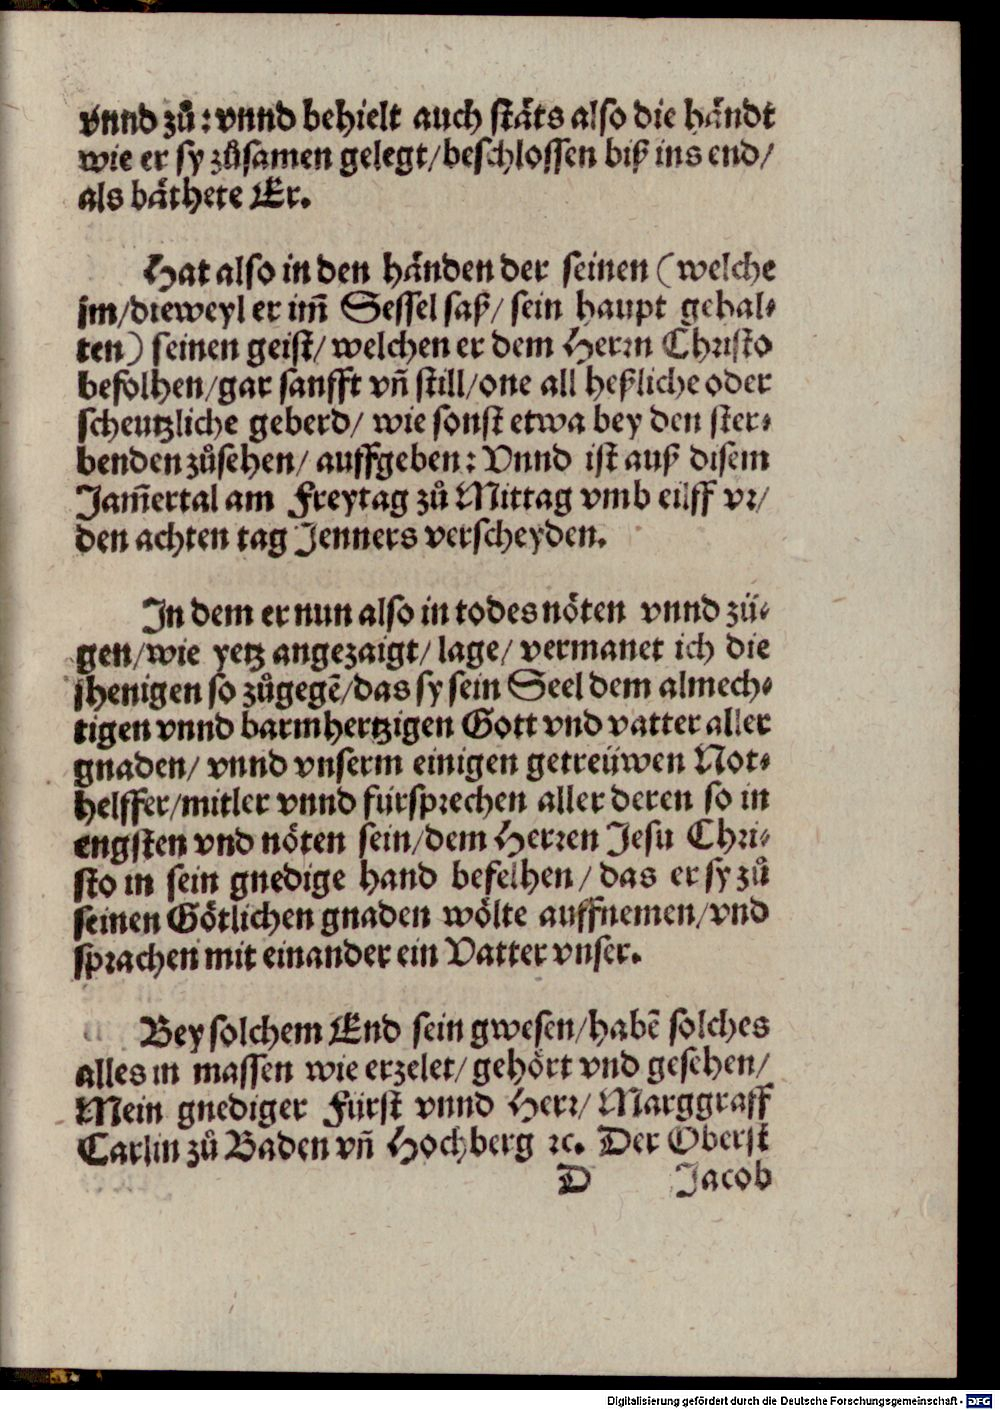 vnnd zů : vnnd behielt auch stäts also die händt
wie er sy zůsamen gelegt/beschlossen biß ins end/
als bäthete Er.
Hat also in den händen der seinen (welche
jm/dieweyl er im̃ Sessel saß/ sein haupt gehal⸗
ten) seinen geist/ welchen er dem Herrn Christo
befolhen/gar sanfft vñ still/one all heßliche oder
scheutzliche geberd/ wie sonst etwa bey den ster⸗
benden zůsehen/ auffgeben: Vnnd ist auß disem
Jam̃ertal am Freytag zů Mittag vmb eilff vr/
den achten tag Jenners verscheyden.
In dem er nun also in todes nöten vnnd zü⸗
gen/wie yetz angezaigt/ lage/ vermanet ich die
jhenigen so zůgegẽ/das sy sein Seel dem almech⸗
tigen vnnd barmhertzigen Gott vnd vatter aller
gnaden/ vnnd vnserm einigen getreüwen Not⸗
helffer/mitler vnnd fürsprechen aller deren so in
engsten vnd nöten sein/dem Herren Jesu Chri⸗
sto in sein gnedige hand befelhen/ das er sy zů
seinen Götlichen gnaden wölte auffnemen/vnd
sprachen mit einander ein Vatter vnser.
Bey solchem End sein gwesen/habẽ solches
alles in massen wie erzelet/ gehört vnd gesehen/
Mein gnediger Fürst vnnd Herr/ Marggraff
Carlin zů Baden vñ Hochberg ꝛc. Der Oberst
D Jacob
Digitalisierung gefördert durch die Deutsche Forschungsgemeinschaft - DFG